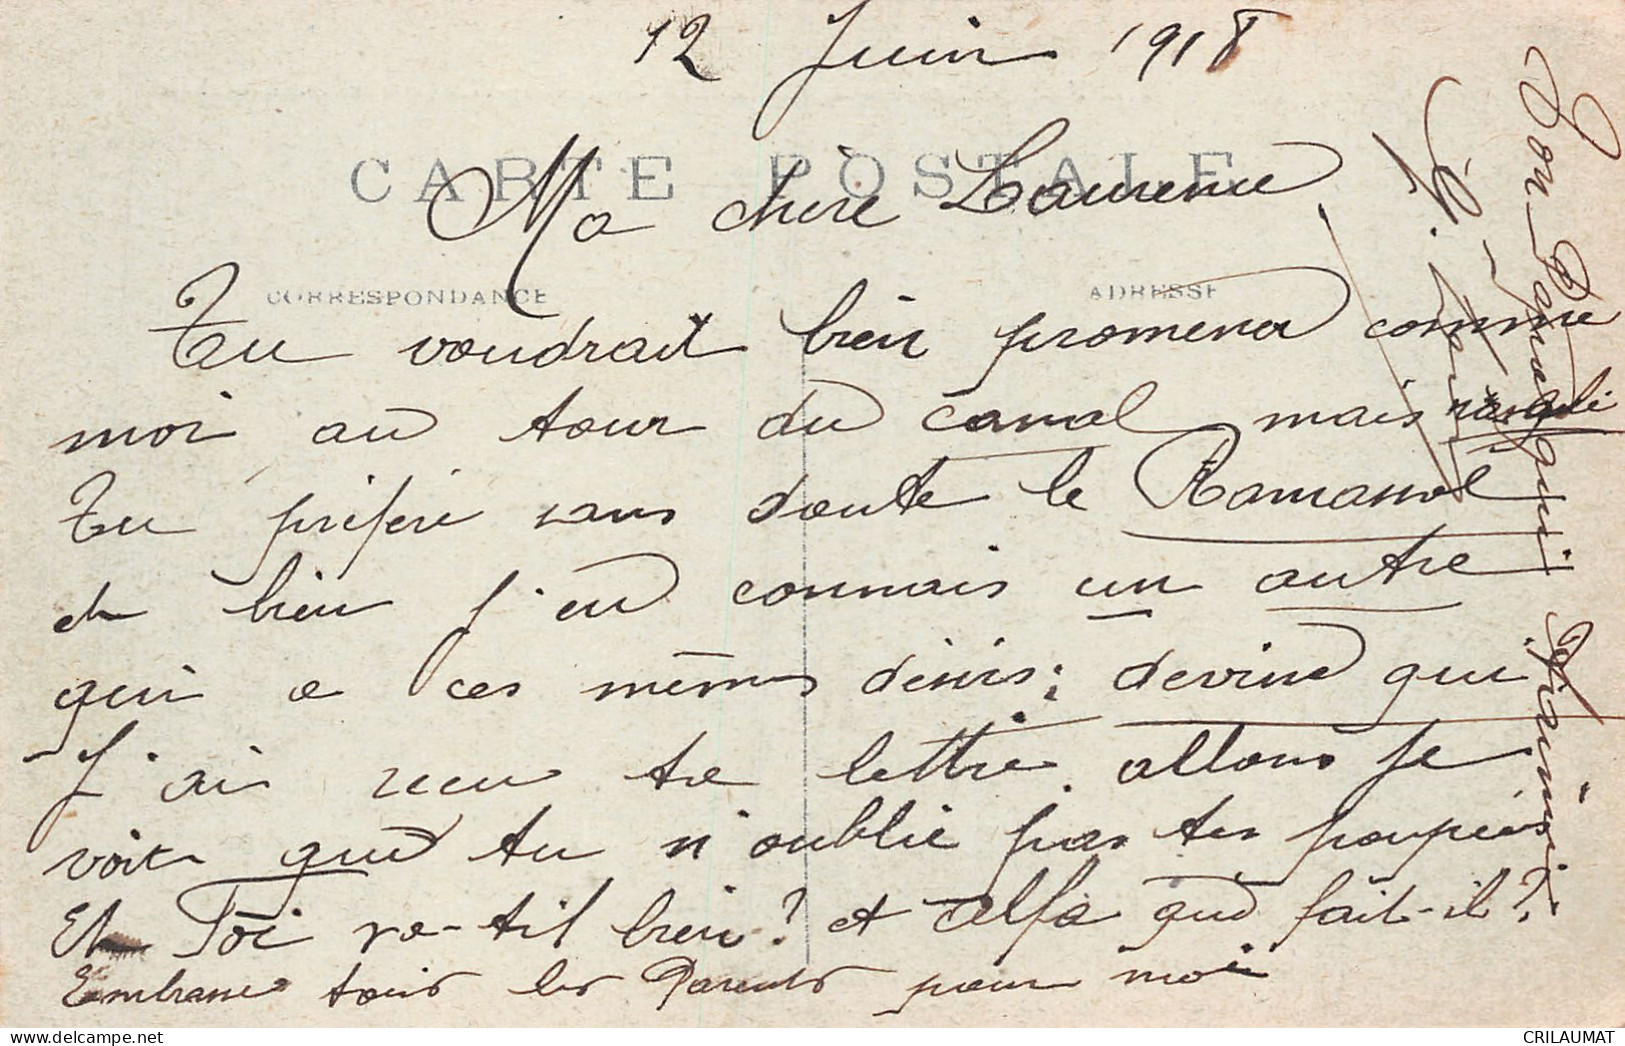 12 Juin 1918
CARTE POSTALE
Ma chère Laurence
CORRESPONDANCE
ADRESSE
Tu voudrait bien promener comme
moi au tour du canal mais
Tu préfère sans doute le Ramassol
et bien j'en connais un autre
qui a ces mêmes désirs; devine qui
J'ai reçu ta lettre allons je
voit que tu n'oublie pas tes poupées
Et Toi va-t-il bien? et Celfa que fait-il?
Embrasse tous les Parents pour moi
Ton qui
CRILAUMAT